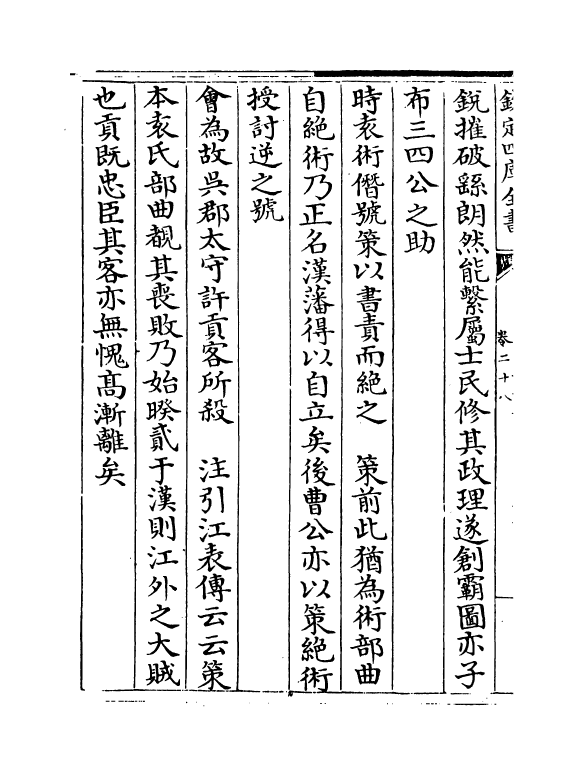 欽定四庫全書
卷二十八
銳摧破繇朗然能繫屬士民修其政理遂創霸圖亦子
布三四公之助
時袁術僭號策以書責而絕之　策前此猶為術部曲
自絕術乃正名漢藩得以自立矣後曹公亦以策絕術
授討逆之號
會為故吳郡太守許貢客所殺　注引江表傳云云策
本袁氏部曲覩其喪敗乃始暌貳于漢則江外之大賊
也貢既忠臣其客亦無愧髙漸離矣